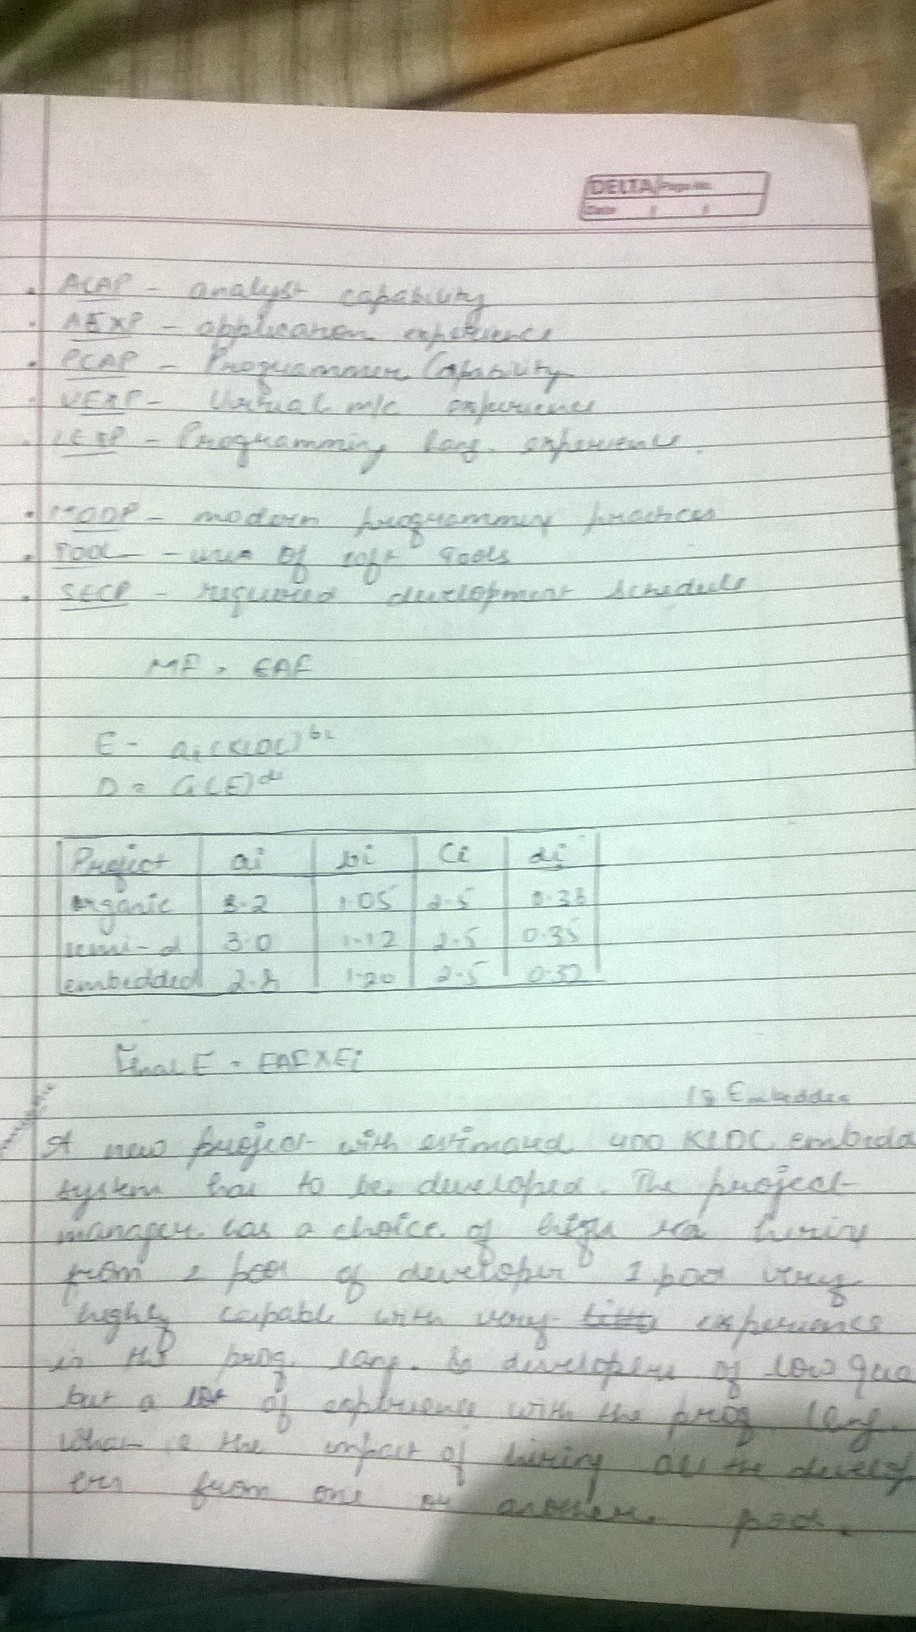 DELTA Page No.
Date / /
• ACAP - analyst capability
• AEXP - application experience
• PCAP - Programmer Capability
• VEXP - Virtual m/c experience
• LEXP - Programming lang. experience.
• MODP - modern programming practices
• TOOL - use of soft tools
• SECP - required development schedule
MF = EAF
E = ai (KLOC)^bi
D = Ci (E)^di
Project ai bi Ci di
organic 3.2 1.05 2.5 0.38
semi-d 3.0 1.12 2.5 0.35
embedded 2.8 1.20 2.5 0.32
Final E = EAF X Ei
Embedded
A new project with estimated 400 KLOC embedd
system has to be developed. The project
manager has a choice of hiring
from 2 pool of developer 1 pool very
highly capable with very experience
in the prog. lang. & developers of low qua
but a lot of experience with the prog. lang.
What is the impact of hiring all the develop
ers from one or another pool.